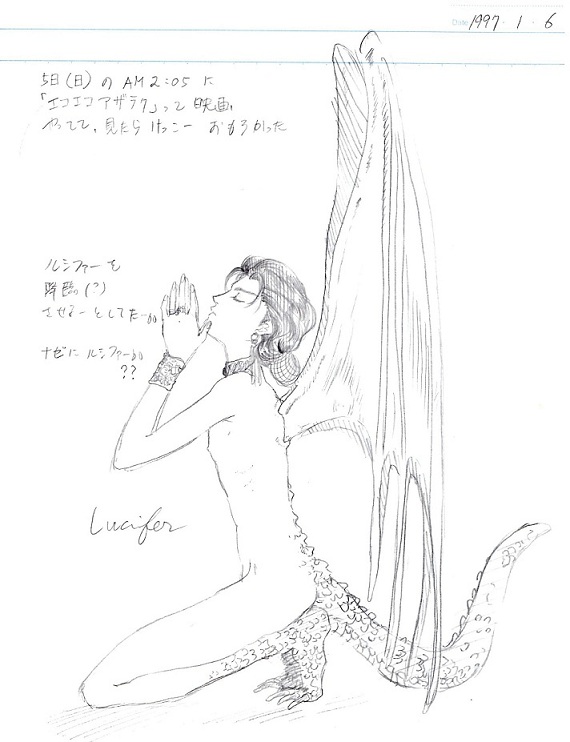 Date 1997・1・6
5日(日)の AM2:05 に
「エコエコアザラク」って映画
やってて、見たら けっこー おもろかった
ルシファーを
降臨(?)
させよーとしてたーoo
ナゼに ルシファーoo
??
Lucifer